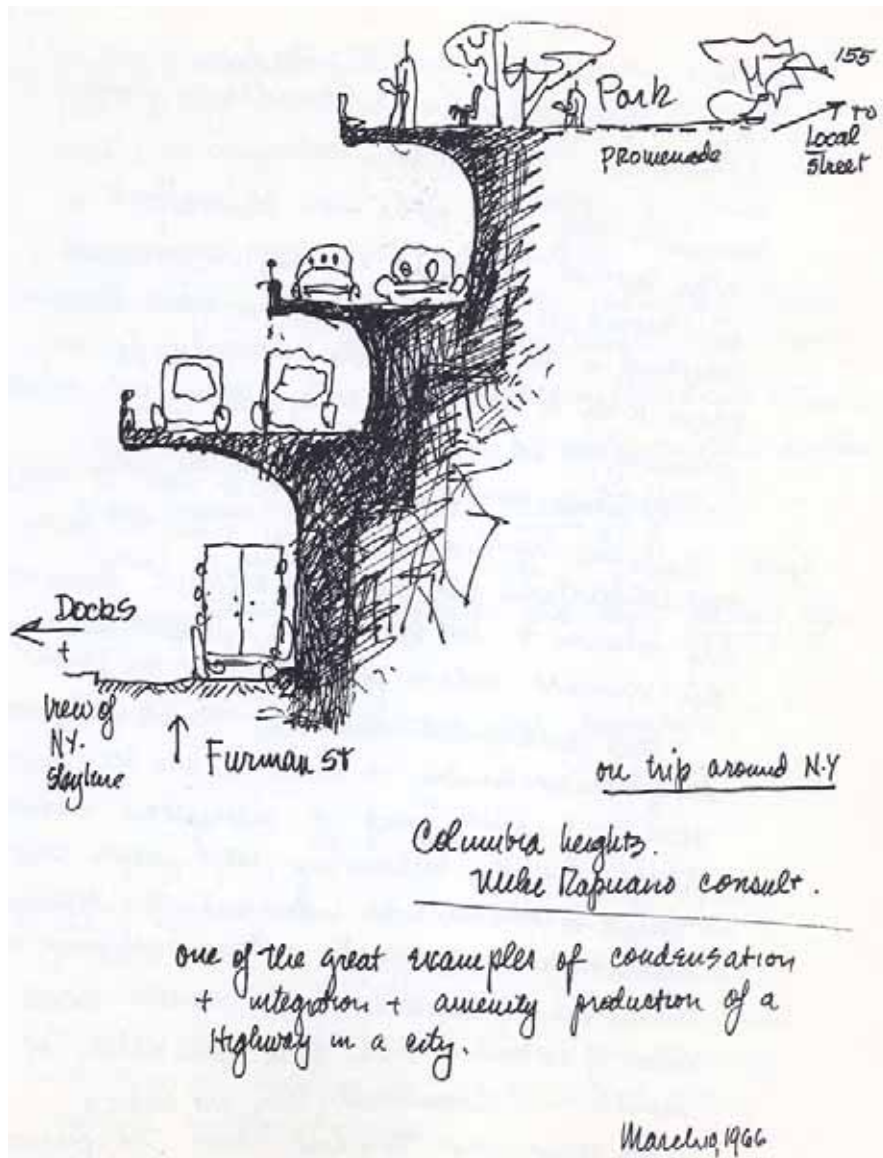 155
Park
promenade
to
Local
Street
Docks
+
View of
N.Y.
skyline
Furman St
on trip around N.Y
Columbia heights.
Mike Rapuano consult.
one of the great examples of condensation
+ integration + amenity production of a
Highway in a city.
March 10, 1966